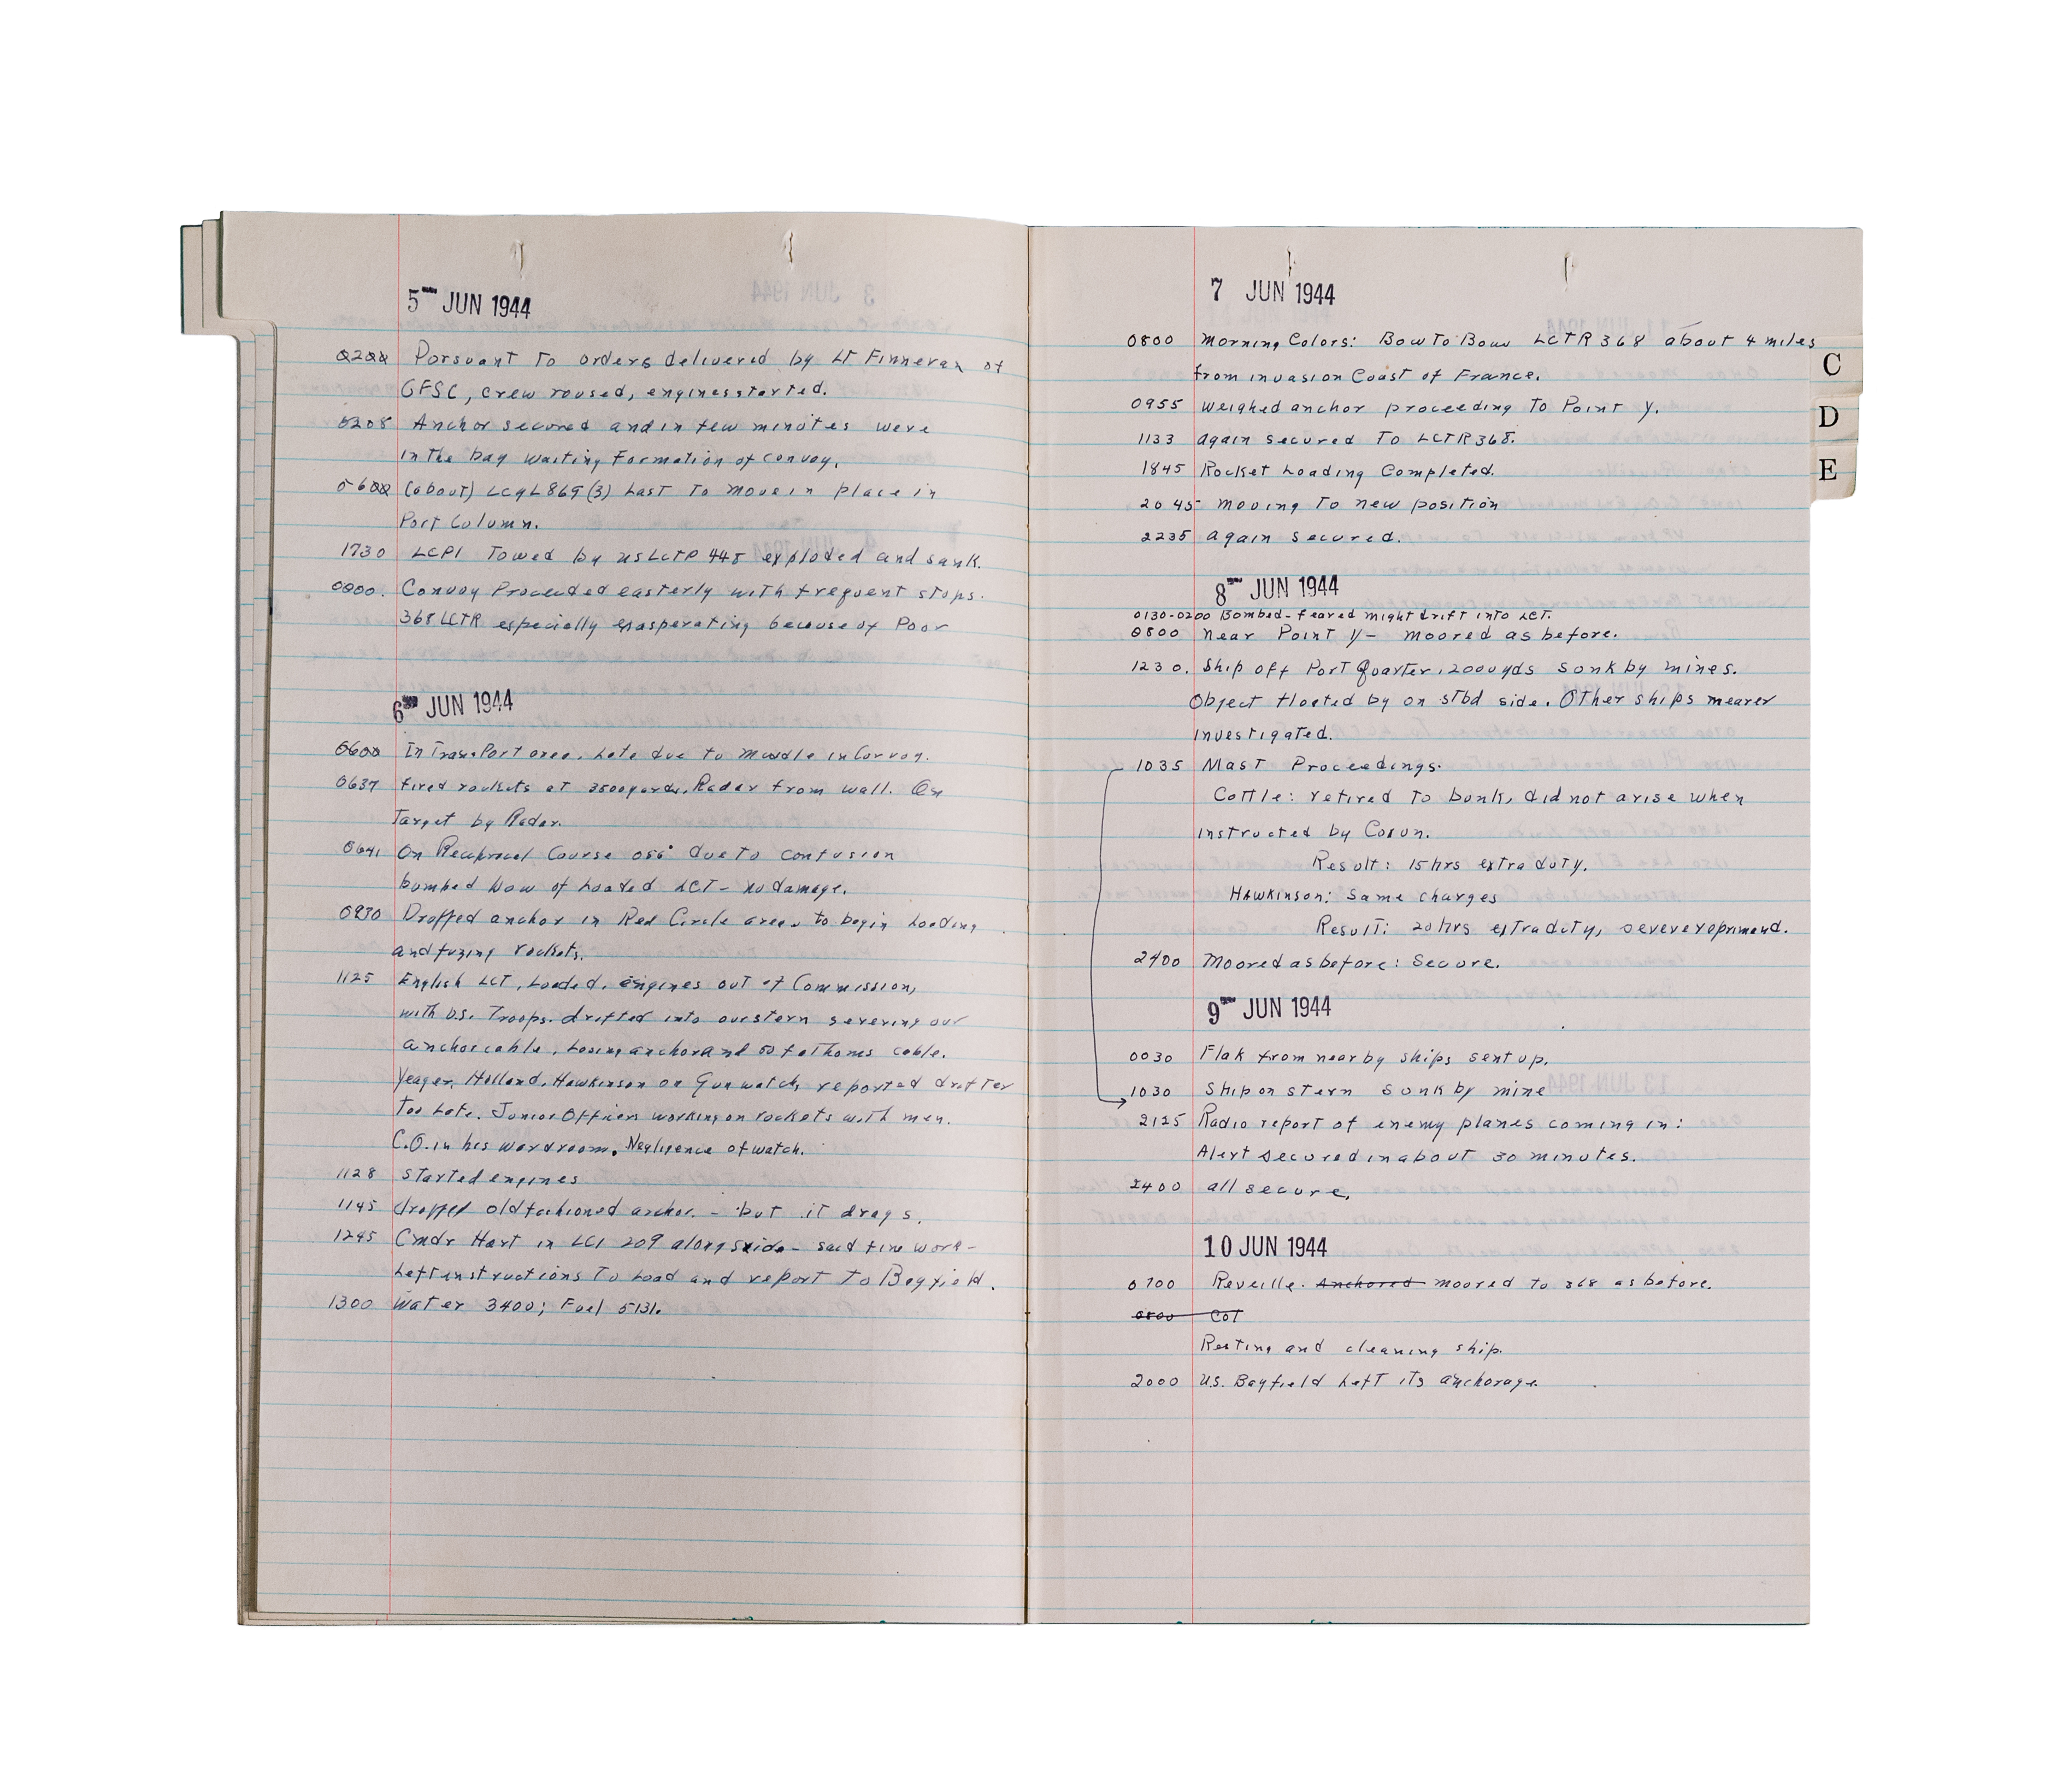 5 JUN 1944
0200 Porsuant to orders delivered by Lt Finneran of
GFSC, crew roused, engines started.
0208 Anchor secured and in few minutes were
in the bay waiting Formation of convoy.
0600 (about) LCGL 869 (3) Last to move in place in
Port Column.
1730 LCP1 Towed by us LCTR 448 exploded and sank.
0000. Convoy Proceeded easterly with frequent stops.
368 LCTR especially exasperating because of Poor
6 JUN 1944
0600 In TransPort area. Late due to muddle in Convoy.
0637 fired rockets at 3500 yards. Radar from wall. On
Target by Radar.
0641 On Reciprocal Course 056° due to confusion
bumped bow of Loaded LCT - no damage.
0930 Dropped anchor in Red Circle area to begin Loading
and fuzing rockets.
1125 English LCT, Loaded, engines out of Commission,
with U.S. Troops. drifted into our stern severing our
anchor cable, Losing anchor and 50 fathoms cable.
Yeager, Holland, Hawkinson on Gun watch, reported drifter
Too Late. Junior Officers working on rockets with men.
C.O. in his wardroom. Negligence of watch.
1128 Started engines
1145 dropped old fashioned anchor. - but it drags.
1245 Cmdr Hart in LCI 209 alongside - said fine work -
Left instructions To Load and report to Bayfield.
1300 Water 3400; Fuel 5131.
7 JUN 1944
0800 Morning Colors: Bow To Bow LCTR 368 about 4 miles
from invasion Coast of France.
0955 weighed anchor proceeding To Point Y.
1133 again secured To LCTR 368.
1845 Rocket Loading Completed.
2045 moving To new position
2235 again secured.
8 JUN 1944
0130-0200 Bombed - feared might drift into LCT.
0800 near Point Y - moored as before.
1230. Ship off Port Quarter, 2000 yds sonk by mines.
Object floated by on stbd side. Other ships nearer
investigated.
1035 Mast Proceedings.
Cottle: retired to bunk, did not arise when
instructed by Coxun.
Result: 15 hrs extra duty.
Hawkinson: Same charges
Result: 20 hrs extra duty, severe reprimand.
2400 Moored as before: Secure.
9 JUN 1944
0030 Flak from nearby ships sent up.
1030 Ship on stern sonk by mine
2125 Radio report of enemy planes coming in:
Alert secured in about 30 minutes.
2400 all secure.
10 JUN 1944
0700 Reveille. Anchored moored to 368 as before.
0800 Col
Resting and cleaning ship.
2000 U.S. Bayfield Left its anchorage.
C
D
E